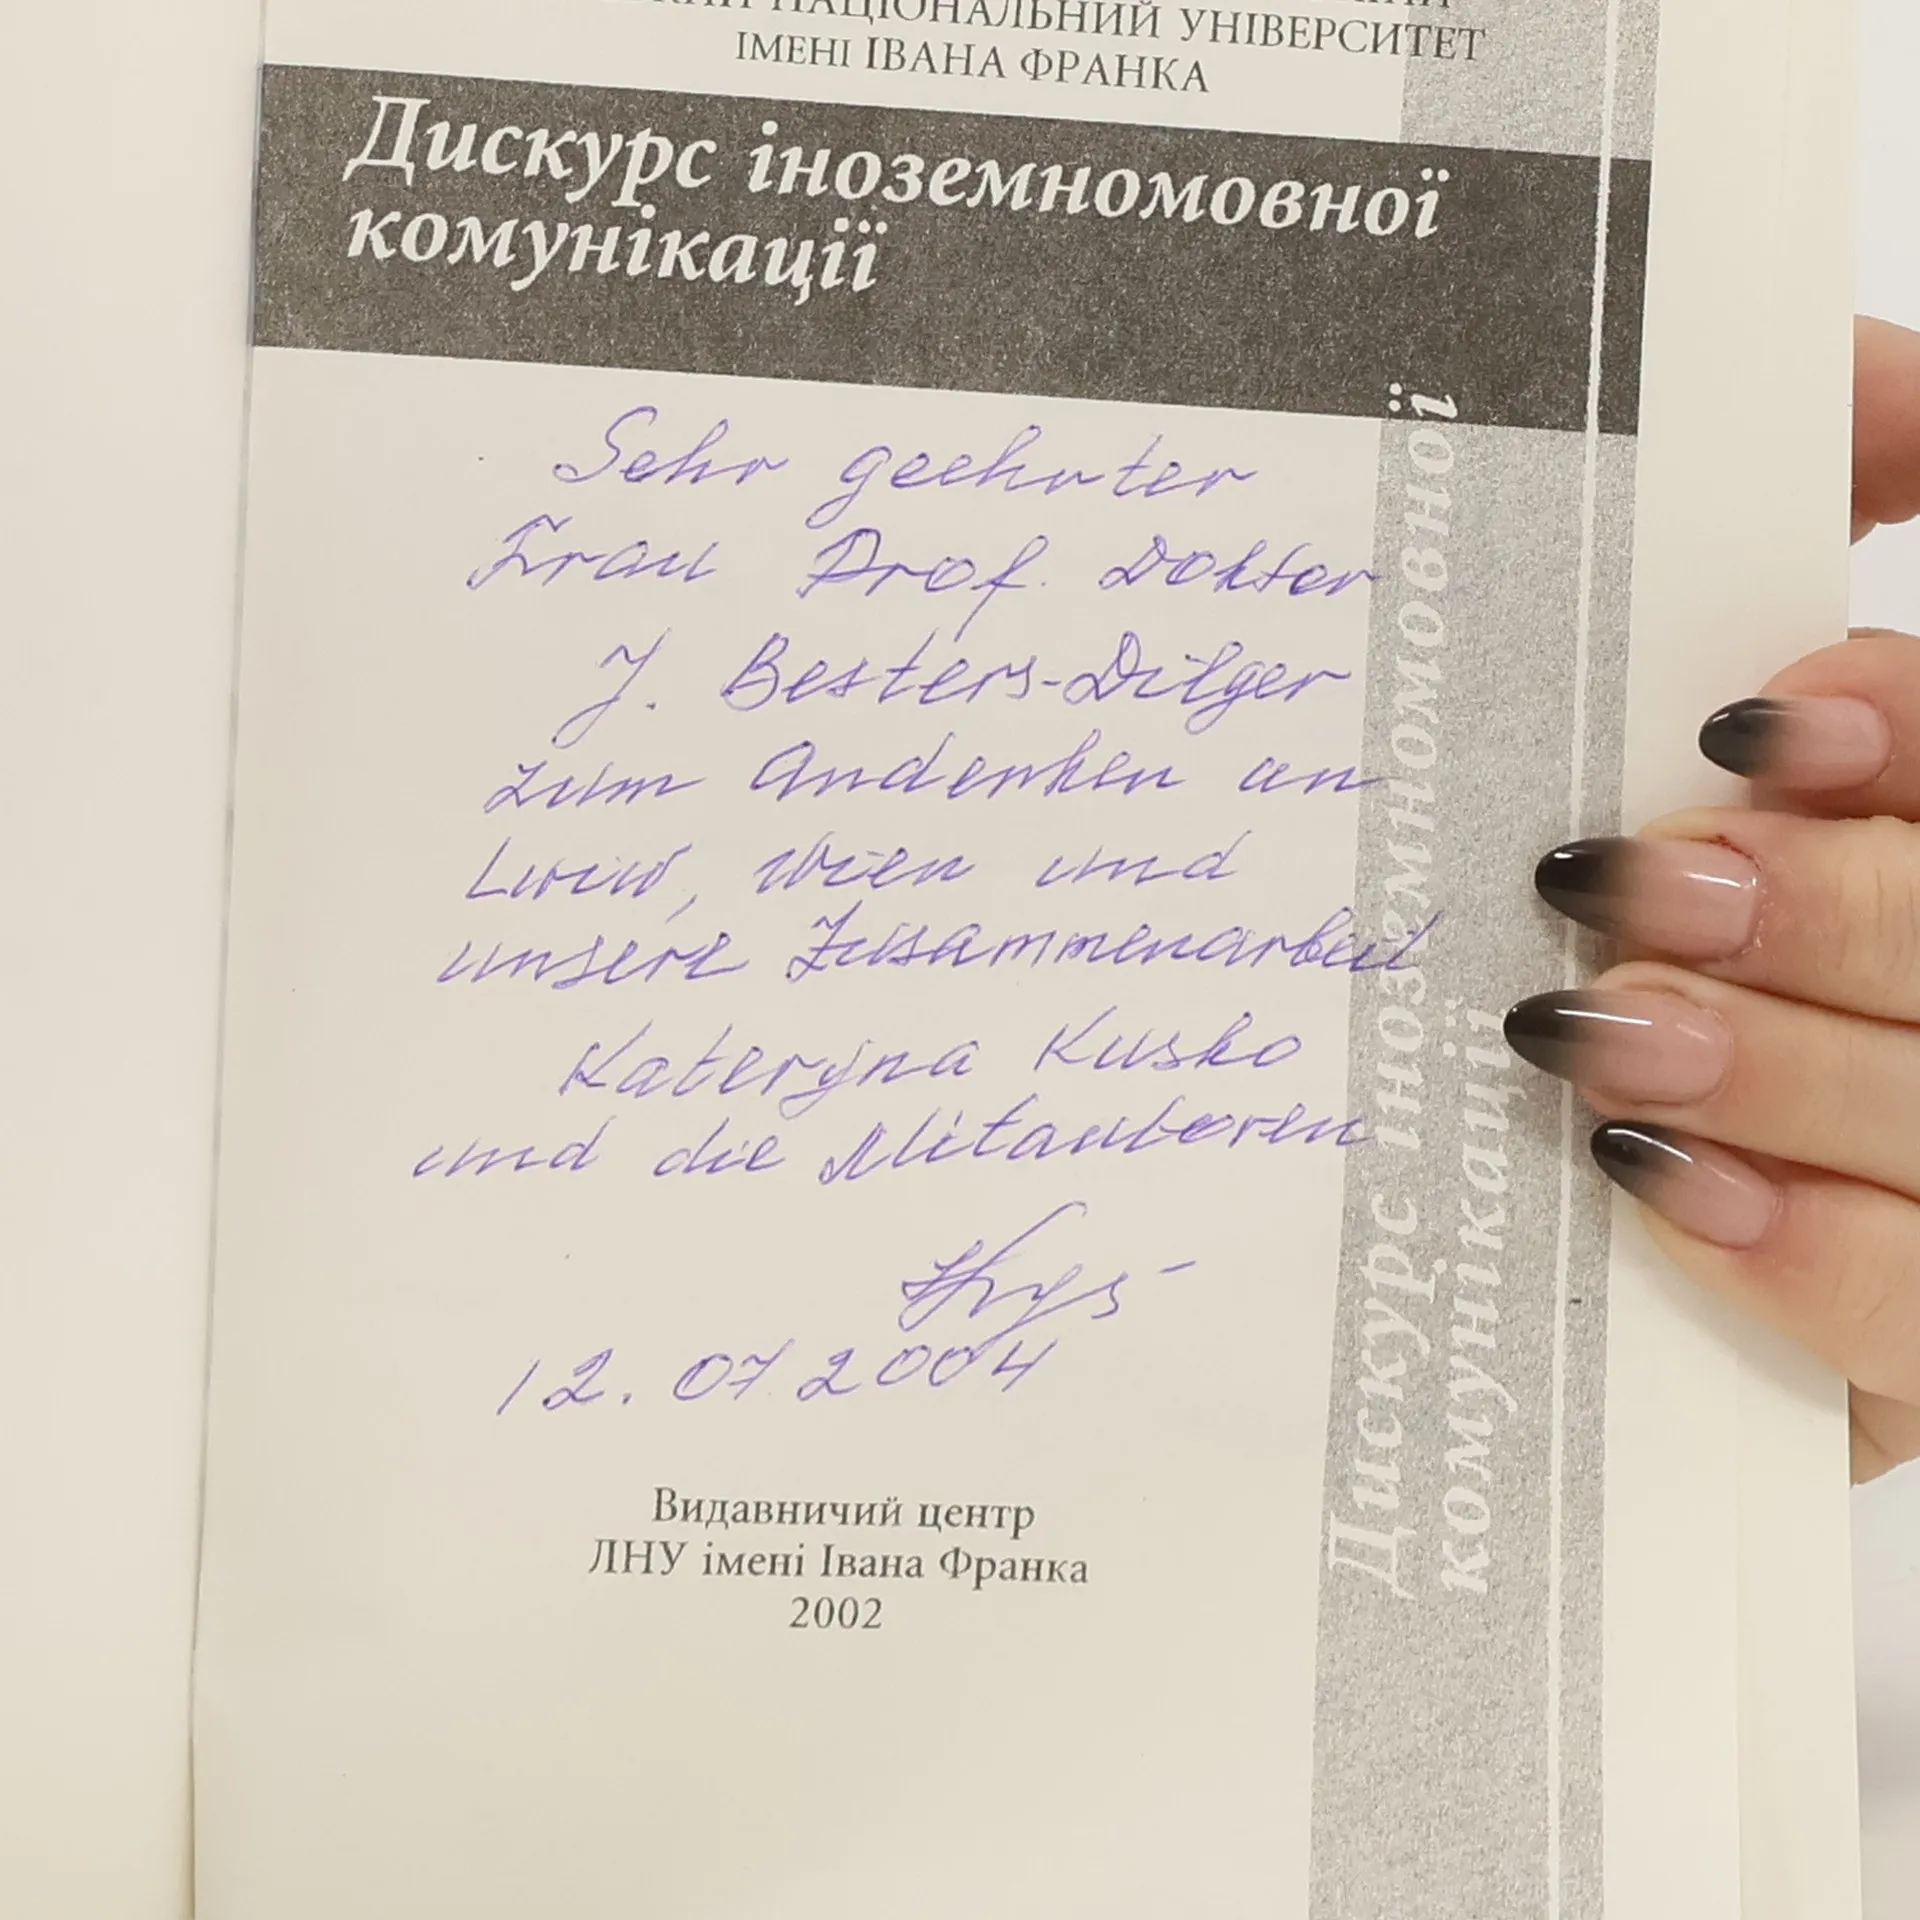 НАЦІОНАЛЬНИЙ УНІВЕРСИТЕТ
ІМЕНІ ІВАНА ФРАНКА
Дискурс іноземномовної
комунікації
Sehr geehrter
Frau Prof. Doktor
J. Besters-Dilger
zum Andenken an
Lwiw, Wien und
unsere Zusammenarbeit
Kateryna Kusko
und die Mitautoren
12.07 2004
Видавничий центр
ЛНУ імені Івана Франка
2002
Дискурс іноземномовної
комунікації